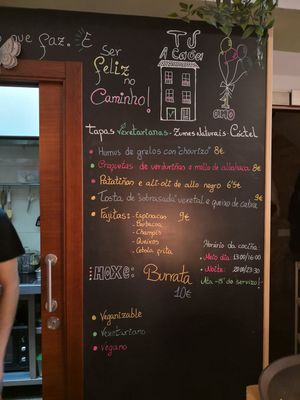 que faz. É
ser
feliz
no
Camiño!
TS
A Casa
Tapas Vexetarianas - Zumes Naturais - Cóctel
Humus de grelos con "chourizo" 8€
Croquetas de verduriñas e mollo de albahaca 8€
Patatiñas e ali-oli de allo negro 6'5€
Tosta de "sobrasada" vexetal e queixo de cabra 9€
Fajitas: - Espinacas 9€
- Barbacoa
- Champis
- Queixos
- Cebola frita
Horario da cociña:
Medio día: 13:00/16:00
Noite: 20:00/23:30
HOXE: Burrata
10€
Veganizable
Vexetariano
Vegano